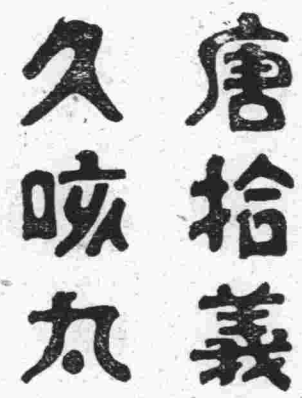 唐拾義
久咳丸